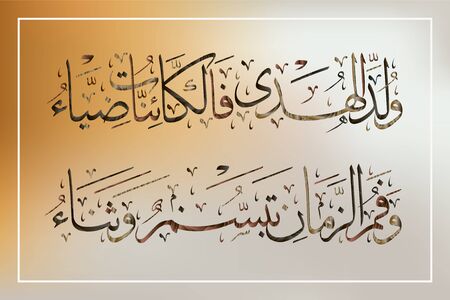 وُلِدَ الهُدَى فَالكَائِنَاتُ ضِيَاءُ
وَفَمُ الزَّمَانِ تَبَسُّمٌ وَثَنَاءُ